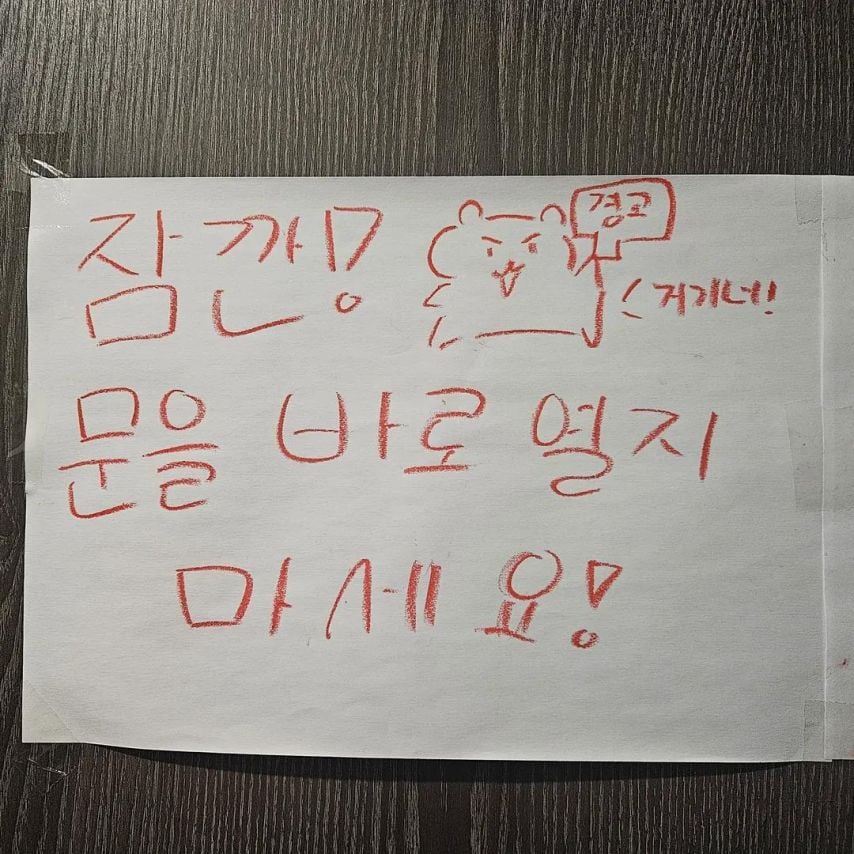 잠깐!
경고
거기너!
문을 바로 열지
마세요!